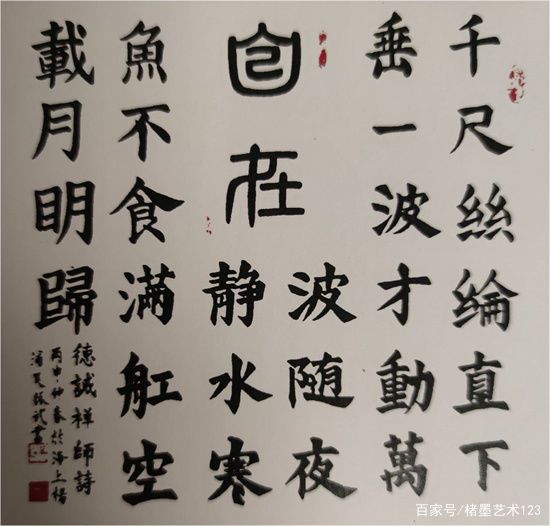 千尺絲綸直下
垂一波才動萬
自在
波随夜
静水寒
魚不食滿舡空
載月明歸
德誠禅師詩
丙申仲春於海上楊
浦
百家号/楮墨艺术123